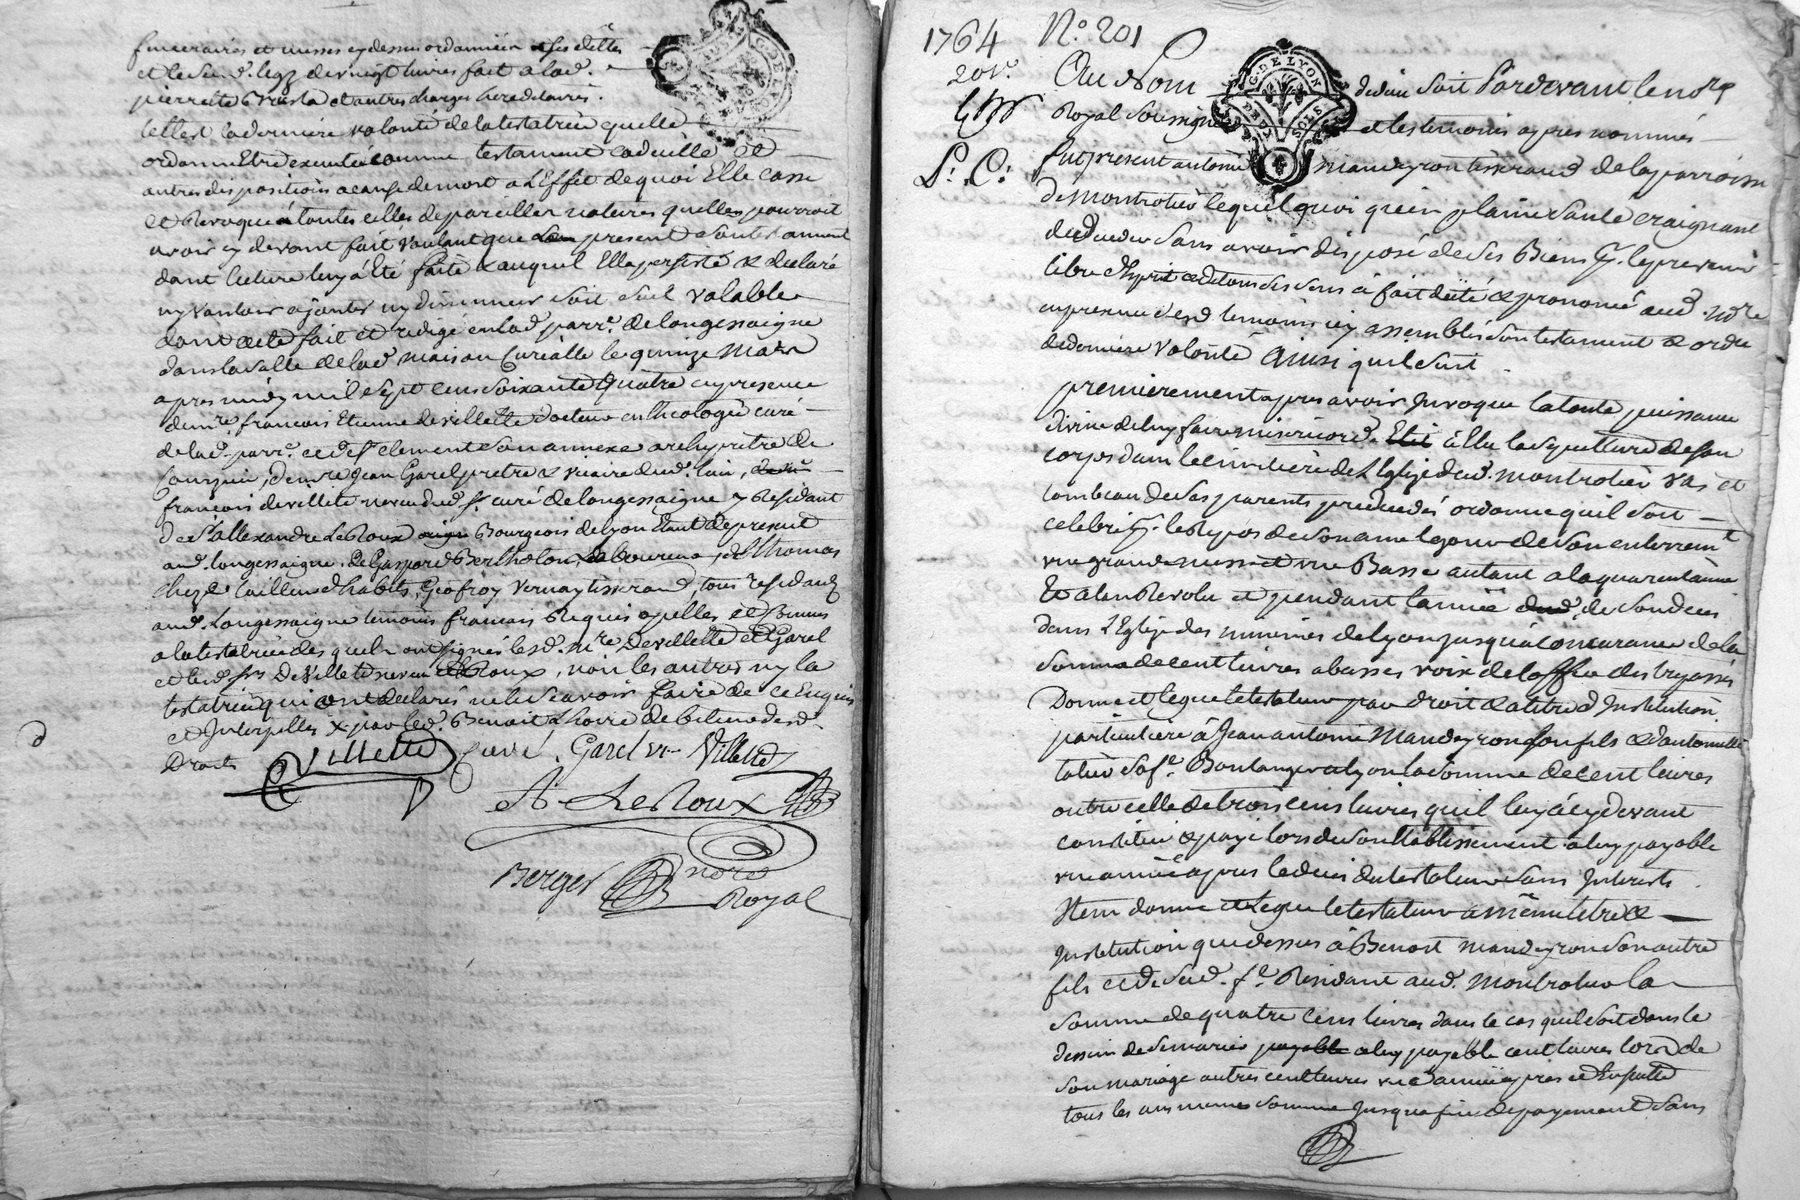 funeraires et messes cy dessus ordonnées ses dettes
et le susd. legz de vingt livres fait a lad.
pierrette et autres charges hereditaires.
telle est la derniere volonté de la testatrice quelle
ordonne Etre executée comme testament codecille et
autres dispositions a cause de mort a L'Effet de quoi Elle casse
et Revoque toutes celles de pareilles natures quelles pourroit
avoir cy devant fait voulant que le present son testament
dont lecture luy a été faite & auquel Elle persiste & declaré
ny vouloir ajouter ny diminuer soit seul valable
dont acte fait et redigé en lad. parr.e de longessaigne
dans la salle de lad. maison Curialle le quinze Mars
apres midy mil sept cens soixante Quatre en presence
de m.re françois Etienne de villette docteur en theologie curé
de lad. parr.e et de S.t clement son annexe archiprêtre de
de m.re jean Garel prêtre & vicaire dud. lieu,
françois de villette neveu dud. s.r curé de longessaigne y Residant
de S.r allexandre LeRoux Bourgeois de Lyon Etant de present
aud. longessaigne, de Gaspard Bertholon Laboureur, de Thomas
tailleur d'habits, Geofroy Vernay tisserand, tous residants
aud. Longessaigne temoins francais Requis apelles et
a la testatrice des quels ont signés lesd. m.re Devillette et Garel
et lesd. srs De Villette neveu et LeRoux, non les autres ny la
testatrice qui ont declarés ne le Scavoir faire de ce Enquis
et Interpellés par led. Benoit
Droits
Villette Curé. Garel v.re Villette
A. LeRoux
Berger no.re
Royal
1764 N.o 201
201.e
Au Nom de dieu soit Pardevant le no.re
G. DE LYON
DEUX SOLS
Royal Soussigné et les temoins apres nommés
L.C.
fut present antoine mandeyron tisserand de la parroisse
de montrotier lequel quoi qu'en plaine santé craignant
de deceder sans avoir disposé de ses Biens p.r le prevenir
libre d'Esprit et de tous ses sens a fait dité & prononcé aud. no.re
en presence desd. temoins icy assemblés son testament & ordre
de derniere volonté ainsi quil suit
premierement apres avoir Invoque la toute puissance
divine de luy faire misericorde à Elu la sepulture de son
corps dans le cimetière de l'Eglise dud. montrotier vas et
tombeau de ses parents predecedés ordonne quil soit
celebré p.r le Repos de son ame le jour de son enterrem.t
une grande messe et une Basse autant a la quarantaine
Et a l'an Revolu et pendant l'année de son deces
dans l'Eglise des minimes de Lyon jusqu'a concurance de la
somme de cent livres a basses voix de loffice des trepassés
Donne et legue le testateur par droit & a titre d'Institution
particuliere à Jean antoine Mandeyron son fils & d'antoinette
sa f.e Boulanger a Lyon la somme de cent livres
outre celle de trois cens livres qu'il luy a cy devant
constitué & payé lors de son Etablissement a luy payable
une année apres le deces du testateur sans Interests
Item donne et legue le testateur a même titre &
Institution que dessus à Benoit mandeyron son autre
fils et de sad. f.e Residant aud. Montrotier la
somme de quatre cens livres dans le cas quil soit dans le
dessein de se marier payable a luy payable cent livres lors de
son mariage autres cent livres une année apres et Ensuitte
tous les ans meme somme jusqua fin de payement sans